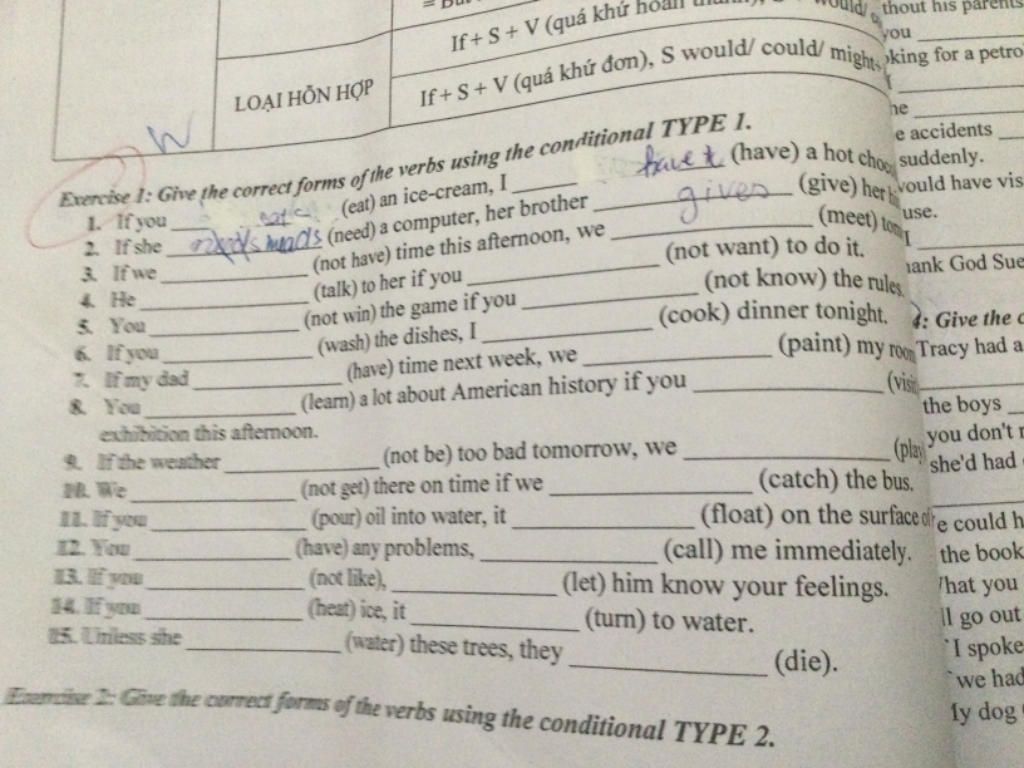 If + S + V (quá khứ hoàn
would/
LOẠI HỖN HỢP
If + S + V (quá khứ đơn), S would/ could/ might
Exercise 1: Give the correct forms of the verbs using the conditional TYPE 1.
1. If you ____ eat (eat) an ice-cream, I ____ have (have) a hot choo
2. If she ____ needs (need) a computer, her brother ____ gives (give) her
3. If we ____ (not have) time this afternoon, we ____ (meet) tom
4. He ____ (talk) to her if you ____ (not want) to do it.
5. You ____ (not win) the game if you ____ (not know) the rules.
6. If you ____ (wash) the dishes, I ____ (cook) dinner tonight.
7. If my dad ____ (have) time next week, we ____ (paint) my room
8. You ____ (learn) a lot about American history if you ____ (visi
exhibition this afternoon.
9. If the weather ____ (not be) too bad tomorrow, we ____ (play
10. We ____ (not get) there on time if we ____ (catch) the bus.
11. If you ____ (pour) oil into water, it ____ (float) on the surface of
12. You ____ (have) any problems, ____ (call) me immediately.
13. If you ____ (not like), ____ (let) him know your feelings.
14. If you ____ (heat) ice, it ____ (turn) to water.
15. Unless she ____ (water) these trees, they ____ (die).
Exercise 2: Give the correct forms of the verbs using the conditional TYPE 2.
thout his parents
you ____
king for a petro
he ____
e accidents ____
suddenly.
would have vis
use.
I ____
hank God Sue
4: Give the c
Tracy had a
the boys ____
you don't
she'd had
e could h
the book
hat you
ll go out
I spoke
we had
ly dog